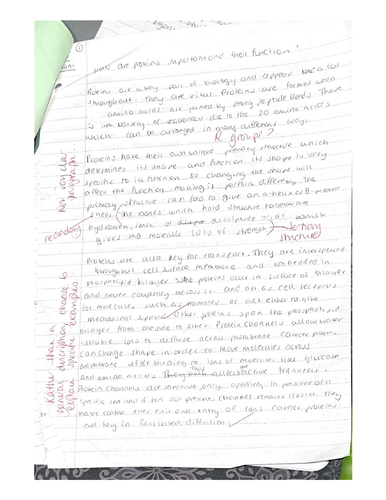 How are proteins important and their function?
Proteins are a key part of biology and appear
throughout. They are vital. Proteins are formed when
amino acids are joined by strong peptide bonds. There
is variety of due to the 20 amino acids
which can be arranged in many different ways.
R groups?
Proteins have their own unique primary structure which
determines its shape and function. Its shape is very
specific to its function so changing the shape will
affect the function making it perform differently. The
primary structure can fold to give an α-helix or B-pleated
sheet. The bonds which hold structure together are
hydrogen, ionic or disulphide which
gives the molecule lots of strength
secondary
tertiary structure
Non very clear paragraph
Proteins are also key for transport. They are interspersed
throughout cell surface membrane and embedded in
phospholipid bilayer. Some proteins occur in surface of bilayer
and never completely across it and act as cell receptors
for molecules such as hormones or act either to give
mechanical support. Other proteins span the phospholipid
bilayer from one side to other. Protein channels allow water
soluble ions to diffuse across membrane. Carrier proteins
can change shape in order to move molecules across
membrane after binding to ions or molecules like glucose
and amino acids.
Protein channels are selective only opening in presence of a
specific ion and if ion not present, channel remains closed. They
have control over exit and entry of ions. Carrier proteins
are key in facilitated diffusion.
Rather than a
general description choose to
explain specific examples